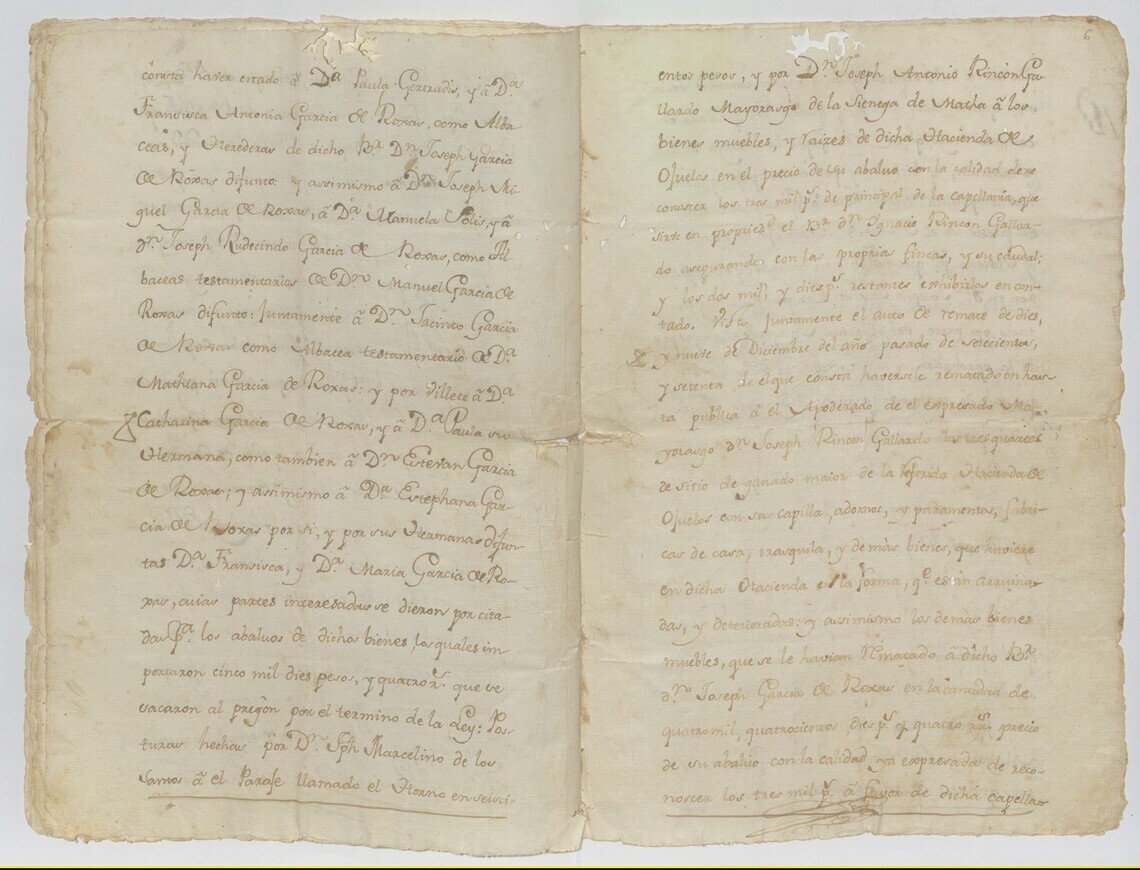 consta haver citado á Dª Paula Gertrudis, y â Dª
Fransisca Antonia Garcia de Roxas, como Alba
ceas, y Herederas de dicho Br Dn Joseph Garcia
de Roxas difunto: y assimismo â Dn Joseph Mi
guel Garcia de Roxas, â Dª Manuela Solis, y â
dn Joseph Rudecindo Garcia de Roxas, como Al
baceas testamentarios de Dn Manuel Garcia de
Roxas difunto: Juntamente â Dn Jacinto Garcia
de Roxas como Albacea testamentario de Dª
Mathiana Garcia de Roxas: y por Villete â Dª
Catharina Garcia de Roxas, y â Dª Paula su
Hermana, como tambien â Dn Estevan Garcia
de Roxas; y assimismo â Dª Estephana Gar-
cia de Roxas por si, y por sus Hermanas difun-
tas Dª Fransisca, y Dª Maria Garcia de Ro-
xas, cuias partes interesadas se dieron por cita-
das pª los abaluos de dichos bienes, los quales im
portaron cinco mil dies pesos, y quatro rs que se
sacaron al pregòn por el termino de la Ley: Pos-
turas hechas por Dn Jph Marcelino de los
Santos â el Paraje llamado el Horno en seisci-
6
entos pesos, y por Dn Joseph Antonio Rincòn Ga-
llardo Mayorasgo de la Sienega de Matha â los
bienes muebles, y raizes de dicha Hacienda de
Ojuelos en el precio de su abaluo con la calidad de re
conoscer los tres mil ps de principal de la capellania, que
sirve en propriedd el Br dn Ygnacio Rincon Gallar-
do asegurando con las proprias fincas, y su caudal;
y los dos mil, y dies ps restantes exhibirlos en con-
tado. Vista juntamente el auto de remate de dies,
y nueve de Diciembre del año pasado de setecientos,
y setenta de el que consta haversele rematado en has-
ta publica â el Apoderado de el expresado Ma-
yorasgo dn Joseph Rincon Gallardo las tres quartas
de sitio de ganado maior de la referida Hacienda de
Ojuelos con su capilla, adornos, y paramentos, fabri-
cas de casa, trasquila, y demàs bienes, que huviere
en dicha Hacienda en la forma, qe estàn arruina-
das, y deterioradas: y assimismo los demàs bienes
muebles, que se le havian rematado â dicho Br
dn Joseph Garcia de Roxas en la cantidad de
quatro mil, quatrocientos, dies ps y quatro rrs precio
de su abaluo con la calidad ya expresada de reco-
noscer los tres mil ps â favor de dicha capella-